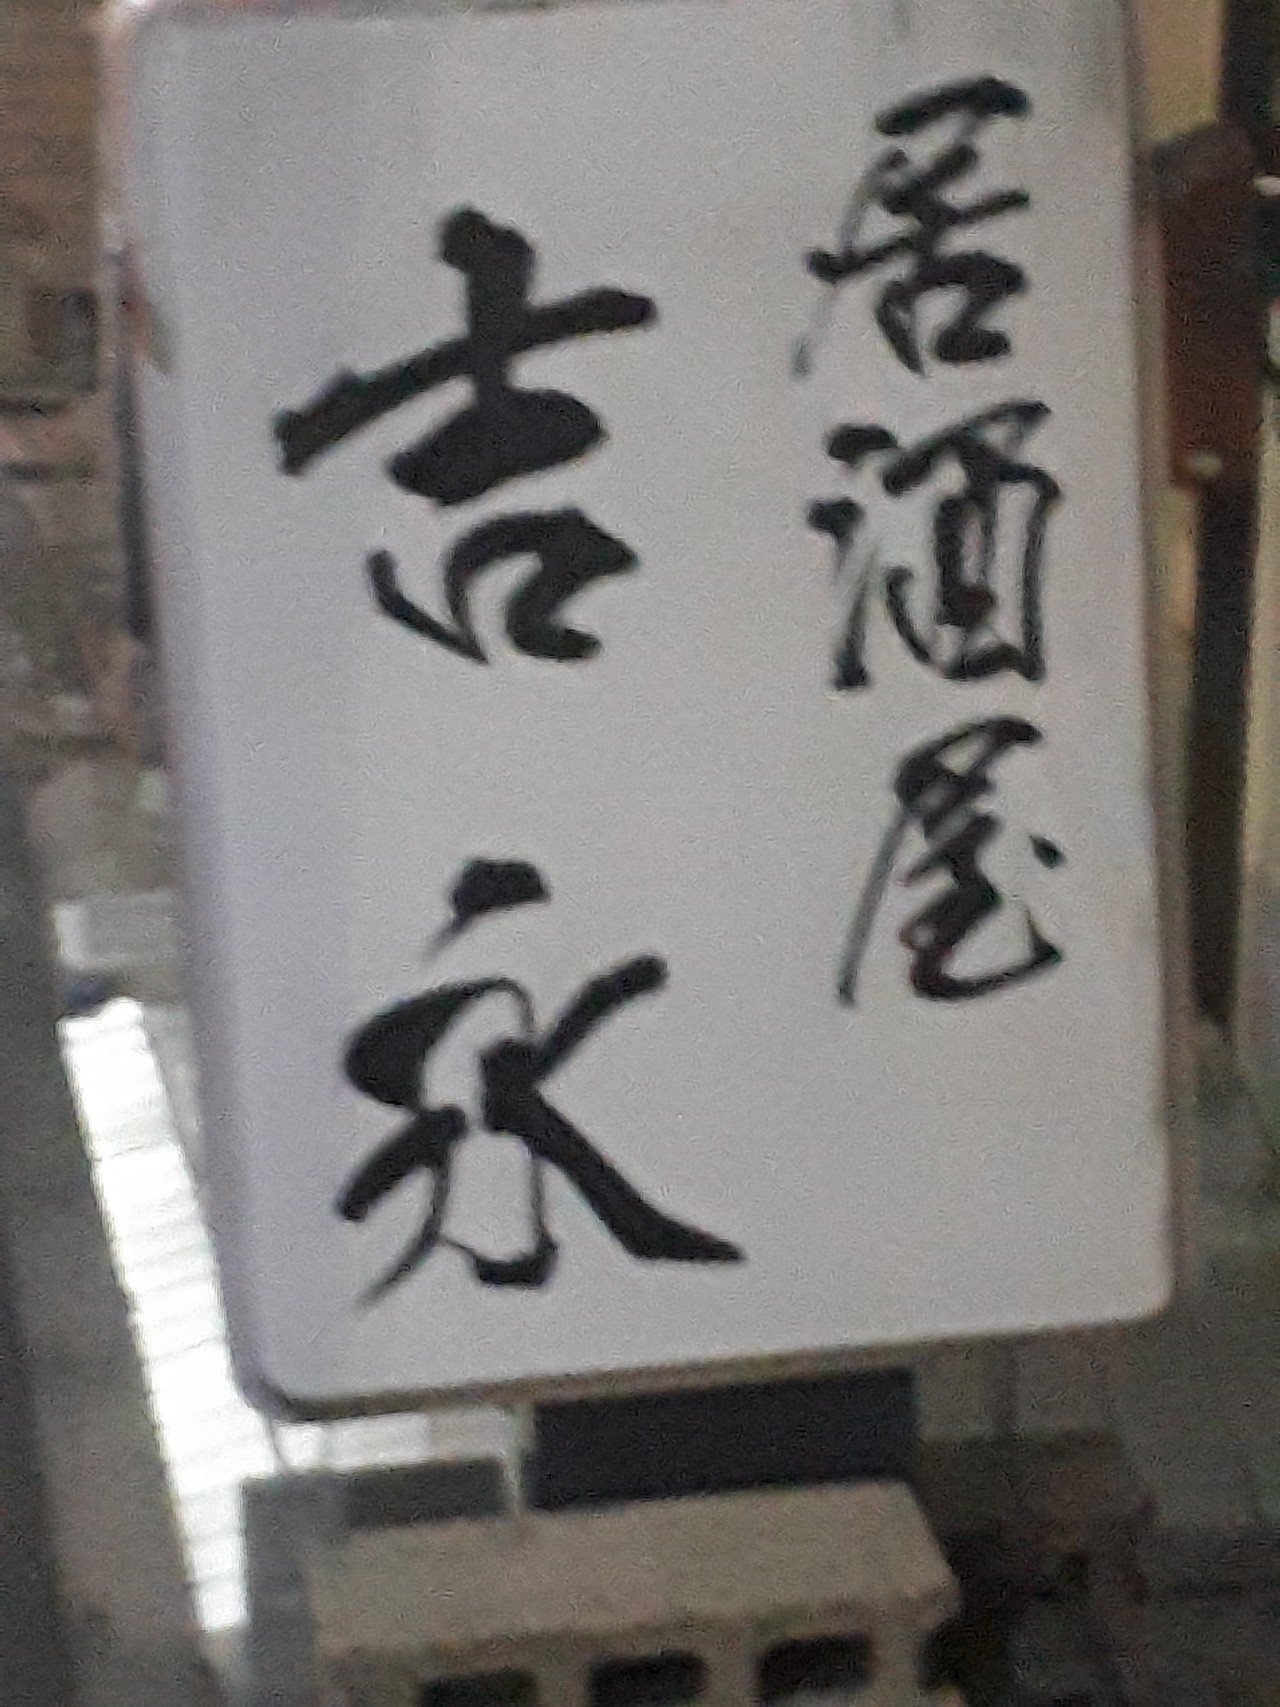 居酒屋
吉永